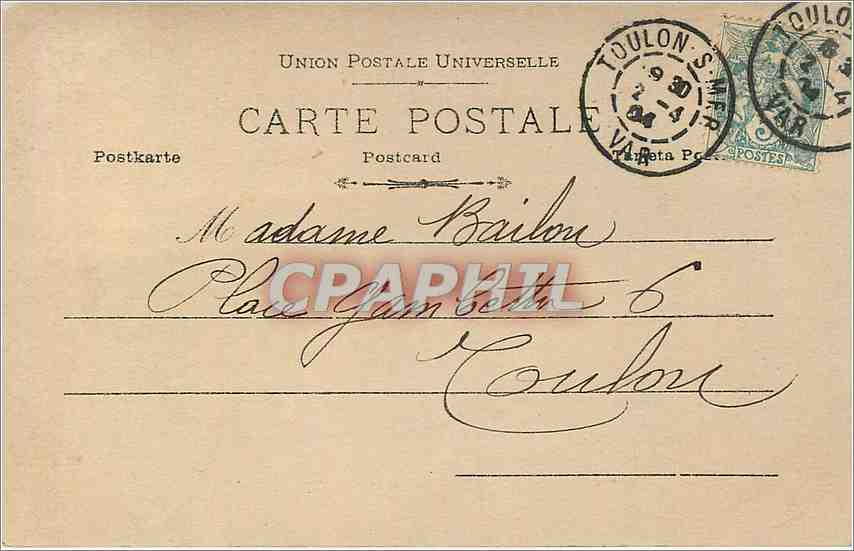 UNION POSTALE UNIVERSELLE
CARTE POSTALE
Postkarte Postcard Tarjeta Pos
TOULON-S-MER
9 30
2 - 4
04
VAR
TOULON
VAR
5
POSTES
Madame Bailon
CPAPHIL
Place Gambetta 6
Toulon